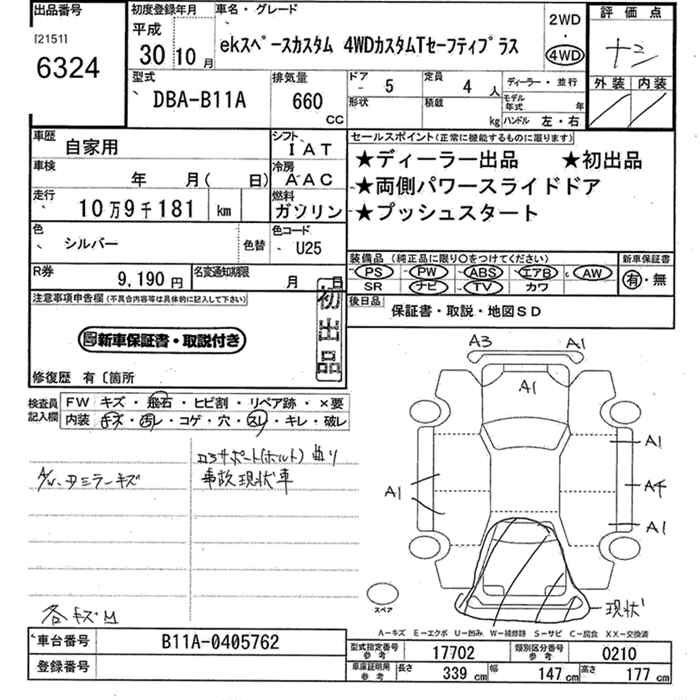 出品番号
[2151]
6324
初度登録年月
平成
30 10 月
車名・グレード
ekスペースカスタム 4WDカスタムTセーフティプラス
2WD
・
4WD
評価点
外装 内装
型式
DBA-B11A
排気量
660
CC
ドア 5
形状
定員 4 人
積載 kg
ディーラー・並行
モデル年式 年
ハンドル 左・右
車歴 自家用
シフト IAT
車検 年 月( 日)
冷房 AAC
走行 10万9千181 km
燃料 ガソリン
色 シルバー
色替
色コード U25
R券 9,190 円
名変通知期限 月 日
セールスポイント(正常に機能するものに限ります)
★ディーラー出品 ★初出品
★両側パワースライドドア
★プッシュスタート
装備品 (純正品に限り○をつけてください)
PS PW ABS エアB AW
SR ナビ TV カワ
新車保証書
有・無
後日品 保証書・取説・地図SD
注意事項申告欄(不具合内容等は具体的に記入して下さい)
初出品
新車保証書・取説付き
修復歴 有〔箇所
検査員記入欄
FW キズ・飛石・ヒビ割・リペア跡・×要
内装 キズ・汚レ・コゲ・穴・スレ・キレ・破レ
事故現状車
各キズM
A3 A1
A1
A1
A1
A1
現状
スペア
A-キズ E-エクボ U-凹み W-補修跡 S-サビ C-腐食 XX-交換済
車台番号 B11A-0405762
登録番号
型式指定番号 参考 17702
類別区分番号 参考 0210
車庫証明用 参考 長さ 339 cm 幅 147 cm 高さ 177 cm